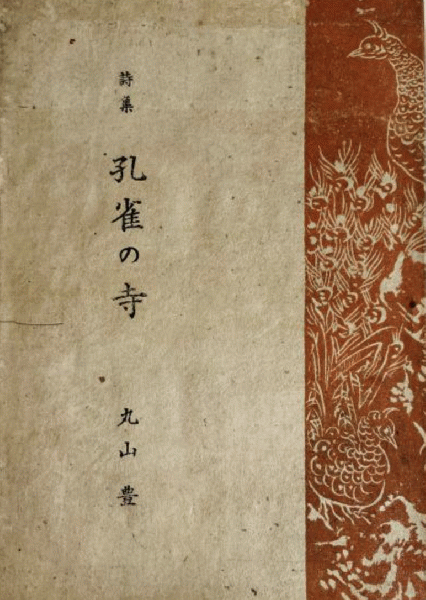 詩集
孔雀の寺
丸山豊